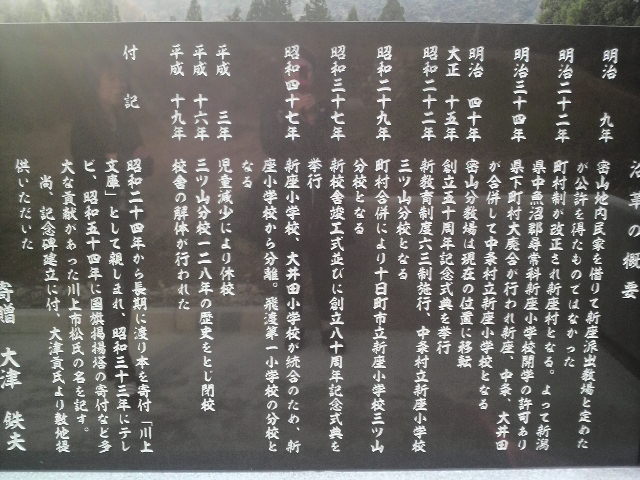 沿革の概要
明治　九年　密山地内民家を借りて新座派出教場と定めた
が公許を得たものではなかった
明治二十二年　町村制が改正され新座村となる。よって新潟
県中魚沼郡尋常科新座小学校開学の許可あり
明治三十四年　県下町村大廃合が行われ新座、中条、大井田
が合併して中条村立新座小学校となる
明治　四十年　密山分教場は現在の位置に移転
大正　十五年　創立五十周年記念式典を挙行
昭和二十二年　新教育制度六三制施行、中条村立新座小学校
三ツ山分校となる
昭和二十九年　町村合併により十日町市立新座小学校三ツ山
分校となる
昭和三十七年　新校舎竣工式並びに創立八十周年記念式典を
挙行
昭和四十七年　新座小学校、大井田小学校が統合のため、新
座小学校から分離。飛渡第一小学校の分校と
なる
平成　三年　児童減少により休校
平成　十六年　三ツ山分校一二八年の歴史をとじ閉校
平成　十九年　校舎の解体が行われた
付　記　昭和二十四年から長期に渡り本を寄付「川上
文庫」として親しまれ、昭和三十三年にテレ
ビ、昭和五十四年に国旗掲揚塔の寄付など多
大な貢献があった川上市松氏の名を記す。
尚、記念碑建立に付、大津貢氏より敷地提
供いただいた
寄贈　大津　鉄夫